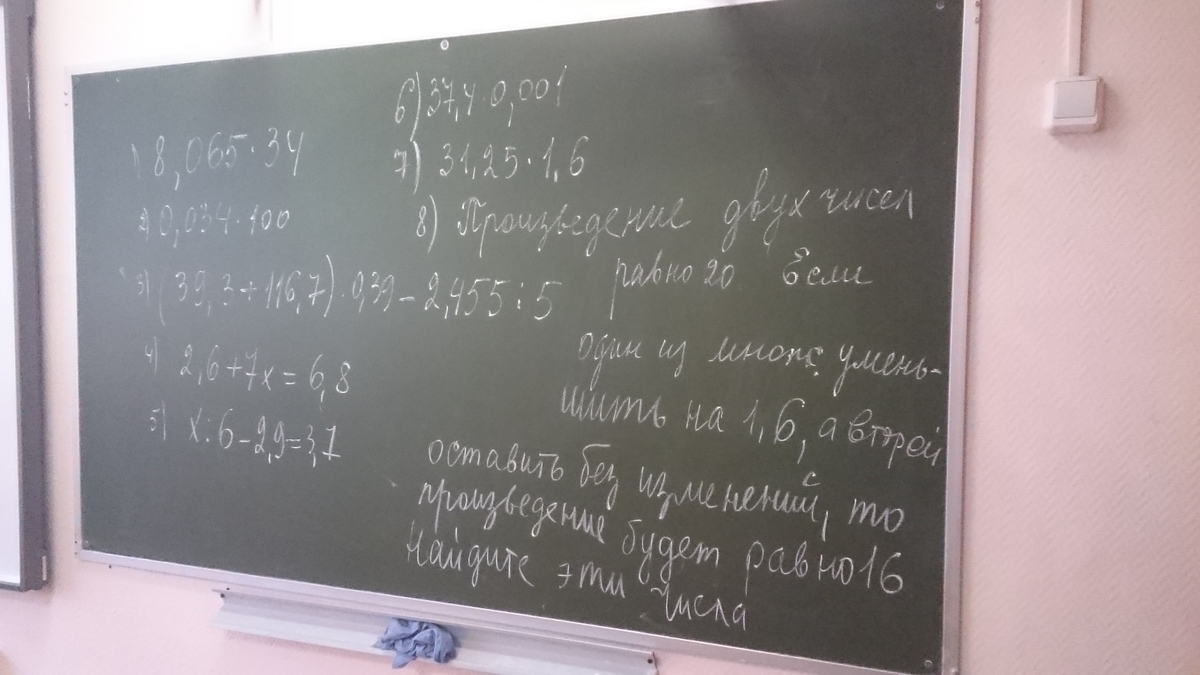 1) 8,065·34
2) 0,034·100
3) (39,3+116,7)·0,39-2,455:5
4) 2,6+7x=6,8
5) x:6-2,9=3,7
6) 37,4·0,001
7) 31,25·1,6
8) Произведение двух чисел
равно 20 Если
один из множ. умень-
шить на 1,6, а второй
оставить без изменений, то
произведение будет равно 16
Найдите эти числа